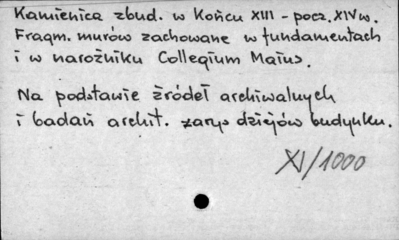 Kamienica zbud. w Końcu XIII - pocz. XIV w.
Fragm. murów zachowane w fundamentach
i w narożniku Collegium Maius.
Na podstawie źródeł archiwalnych
i badań archit. zarys dziejów budynku.
XI/1000